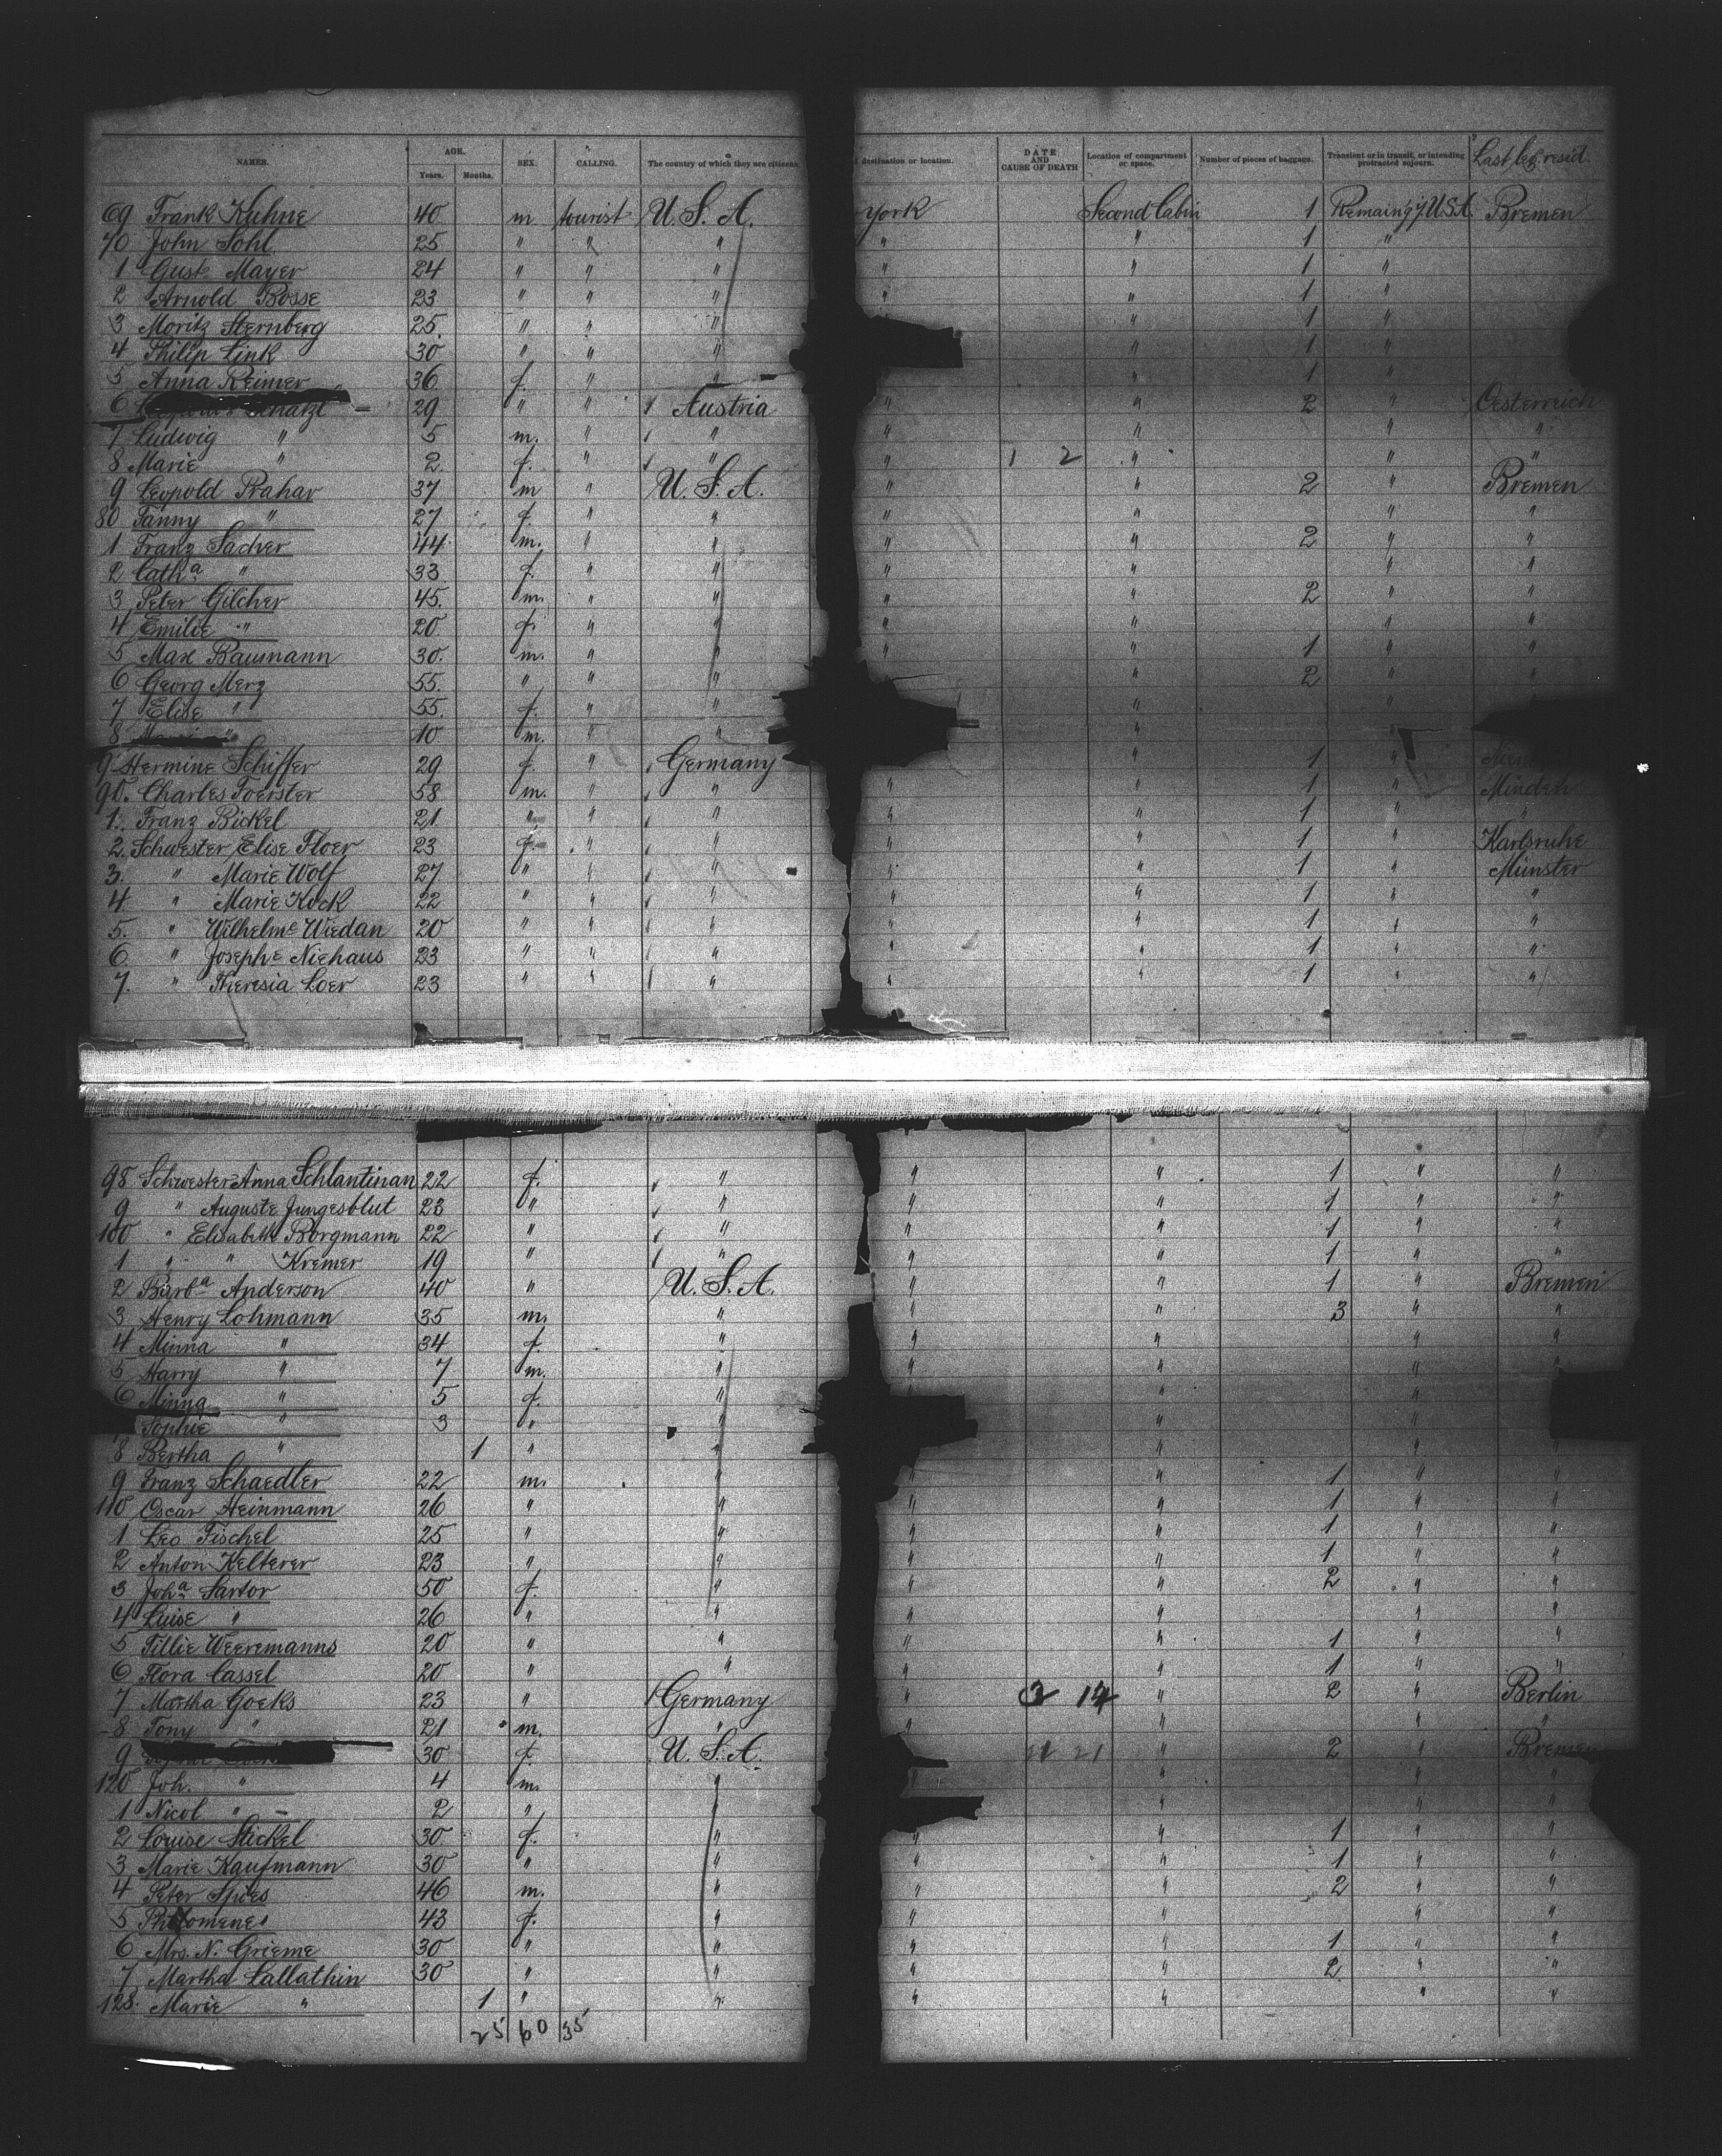 NAMES. AGE. Years. Months. SEX. CALLING. The country of which they are citizens. destination or location. DATE AND CAUSE OF DEATH Location of compartment or space. Number of pieces of baggage. Transient or in transit, or intending protracted sojourn. Last leg. resid.
69 Frank Kuhne 40 m tourist U. S. A. York Second Cabin 1 Remain'g i/ U.S.A. Bremen
70 John Sohl 25 " " " " " 1 "
1 Gust. Mayer 24 " " " " " 1 "
2 Arnold Bosse 23 " " " " " 1 "
3 Moritz Sternberg 25 " " " " 1 "
4 Philip Link 30 " " " " 1 "
5 Anna Reimer 36 f. " " " 1 "
6 Schatzl 29 " " Austria " " 2 " Oesterreich
7 Ludwig " 5 m. " " " " " "
8 Marie " 2 f. " " " 1 2 " " "
9 Leopold Prahar 37 m " U. S. A. " " 2 " Bremen
80 Fanny " 27 f. " " " " " "
1 Franz Sacher 44 m. " " " " 2 " "
2 Cath.a " 33 f. " " " " " "
3 Peter Gilcher 45. m. " " " " 2 " "
4 Emilie " 20 f. " " " " " "
5 Max Baumann 30. m. " " " " 1 " "
6 Georg Merz 55. " " " " 2 " "
7 Elise " 55. f. " " " "
8 " 10 m. " " " "
9 Hermine Schiffer 29 f. " Germany " 1 "
90. Charles Foerster 58 m. " " " " 1 " Minden
1. Franz Bickel 21 " " " " " 1 " "
2. Schwester Elise Floer 23 f. " " " " 1 " Karlsruhe
3. " Marie Wolf 27 " " " " " 1 " Münster
4 " Marie Kock 22 " " " " " 1 " "
5. " Wilhelme Wiedan 20 " " " " " 1 " "
6. " Josephe Niehaus 23 " " " " " 1 " "
7. " Theresia Loer 23 " " " " " 1 " "
98 Schwester Anna Schlantinan 22 f. " " " 1 " "
9 " Auguste Jungesblut 23 " " " " 1 " "
100 " Elisabeth Borgmann 22 " " " " 1 " "
1 " " Kremer 19 " " " " 1 " "
2 Barb.a Anderson 40 " U. S. A. " " 1 " Bremen
3 Henry Lohmann 35 m. " " " 3 " "
4 Minna " 34 f. " " " " "
5 Harry " 7 m. " " " " "
6 Minna " 5 f. " " "
Sophie " 3 " " " "
8 Bertha " 1 " " " " "
9 Franz Schaedler 22 m. " " " 1 " "
110 Oscar Heinmann 26 " " " " 1 " "
1 Leo Fischel 25 " " " " 1 " "
2 Anton Kelterer 23 " " " " 1 " "
3 Joh.a Sartor 50 f. " " " 2 " "
4 Luise " 26 " " " " " "
5 Tillie Weeremanns 20 " " " " 1 " "
6 Flora Cassel 20 " " " " 1 " "
7 Martha Goeks 23 " Germany " 3 14 " 2 " Berlin
8 Tony " 21 m. " " " " "
9 30 f. U. S. A. 21 " 2 " Bremen
120 Joh. " 4 m. " " " " "
1 Nicol " 2 " " " " "
2 Louise Stickel 30 f. " " " 1 " "
3 Marie Kaufmann 30 " " " " 1 " "
4 Peter Spies 46 m. " " " 2 " "
5 43 f. " " " " "
6 Mrs. N. Grieme 30 " " " " 1 " "
7 Martha Callathin 30 " " " " 2 " "
128. Marie " 1 " " " " " "
25 60 35